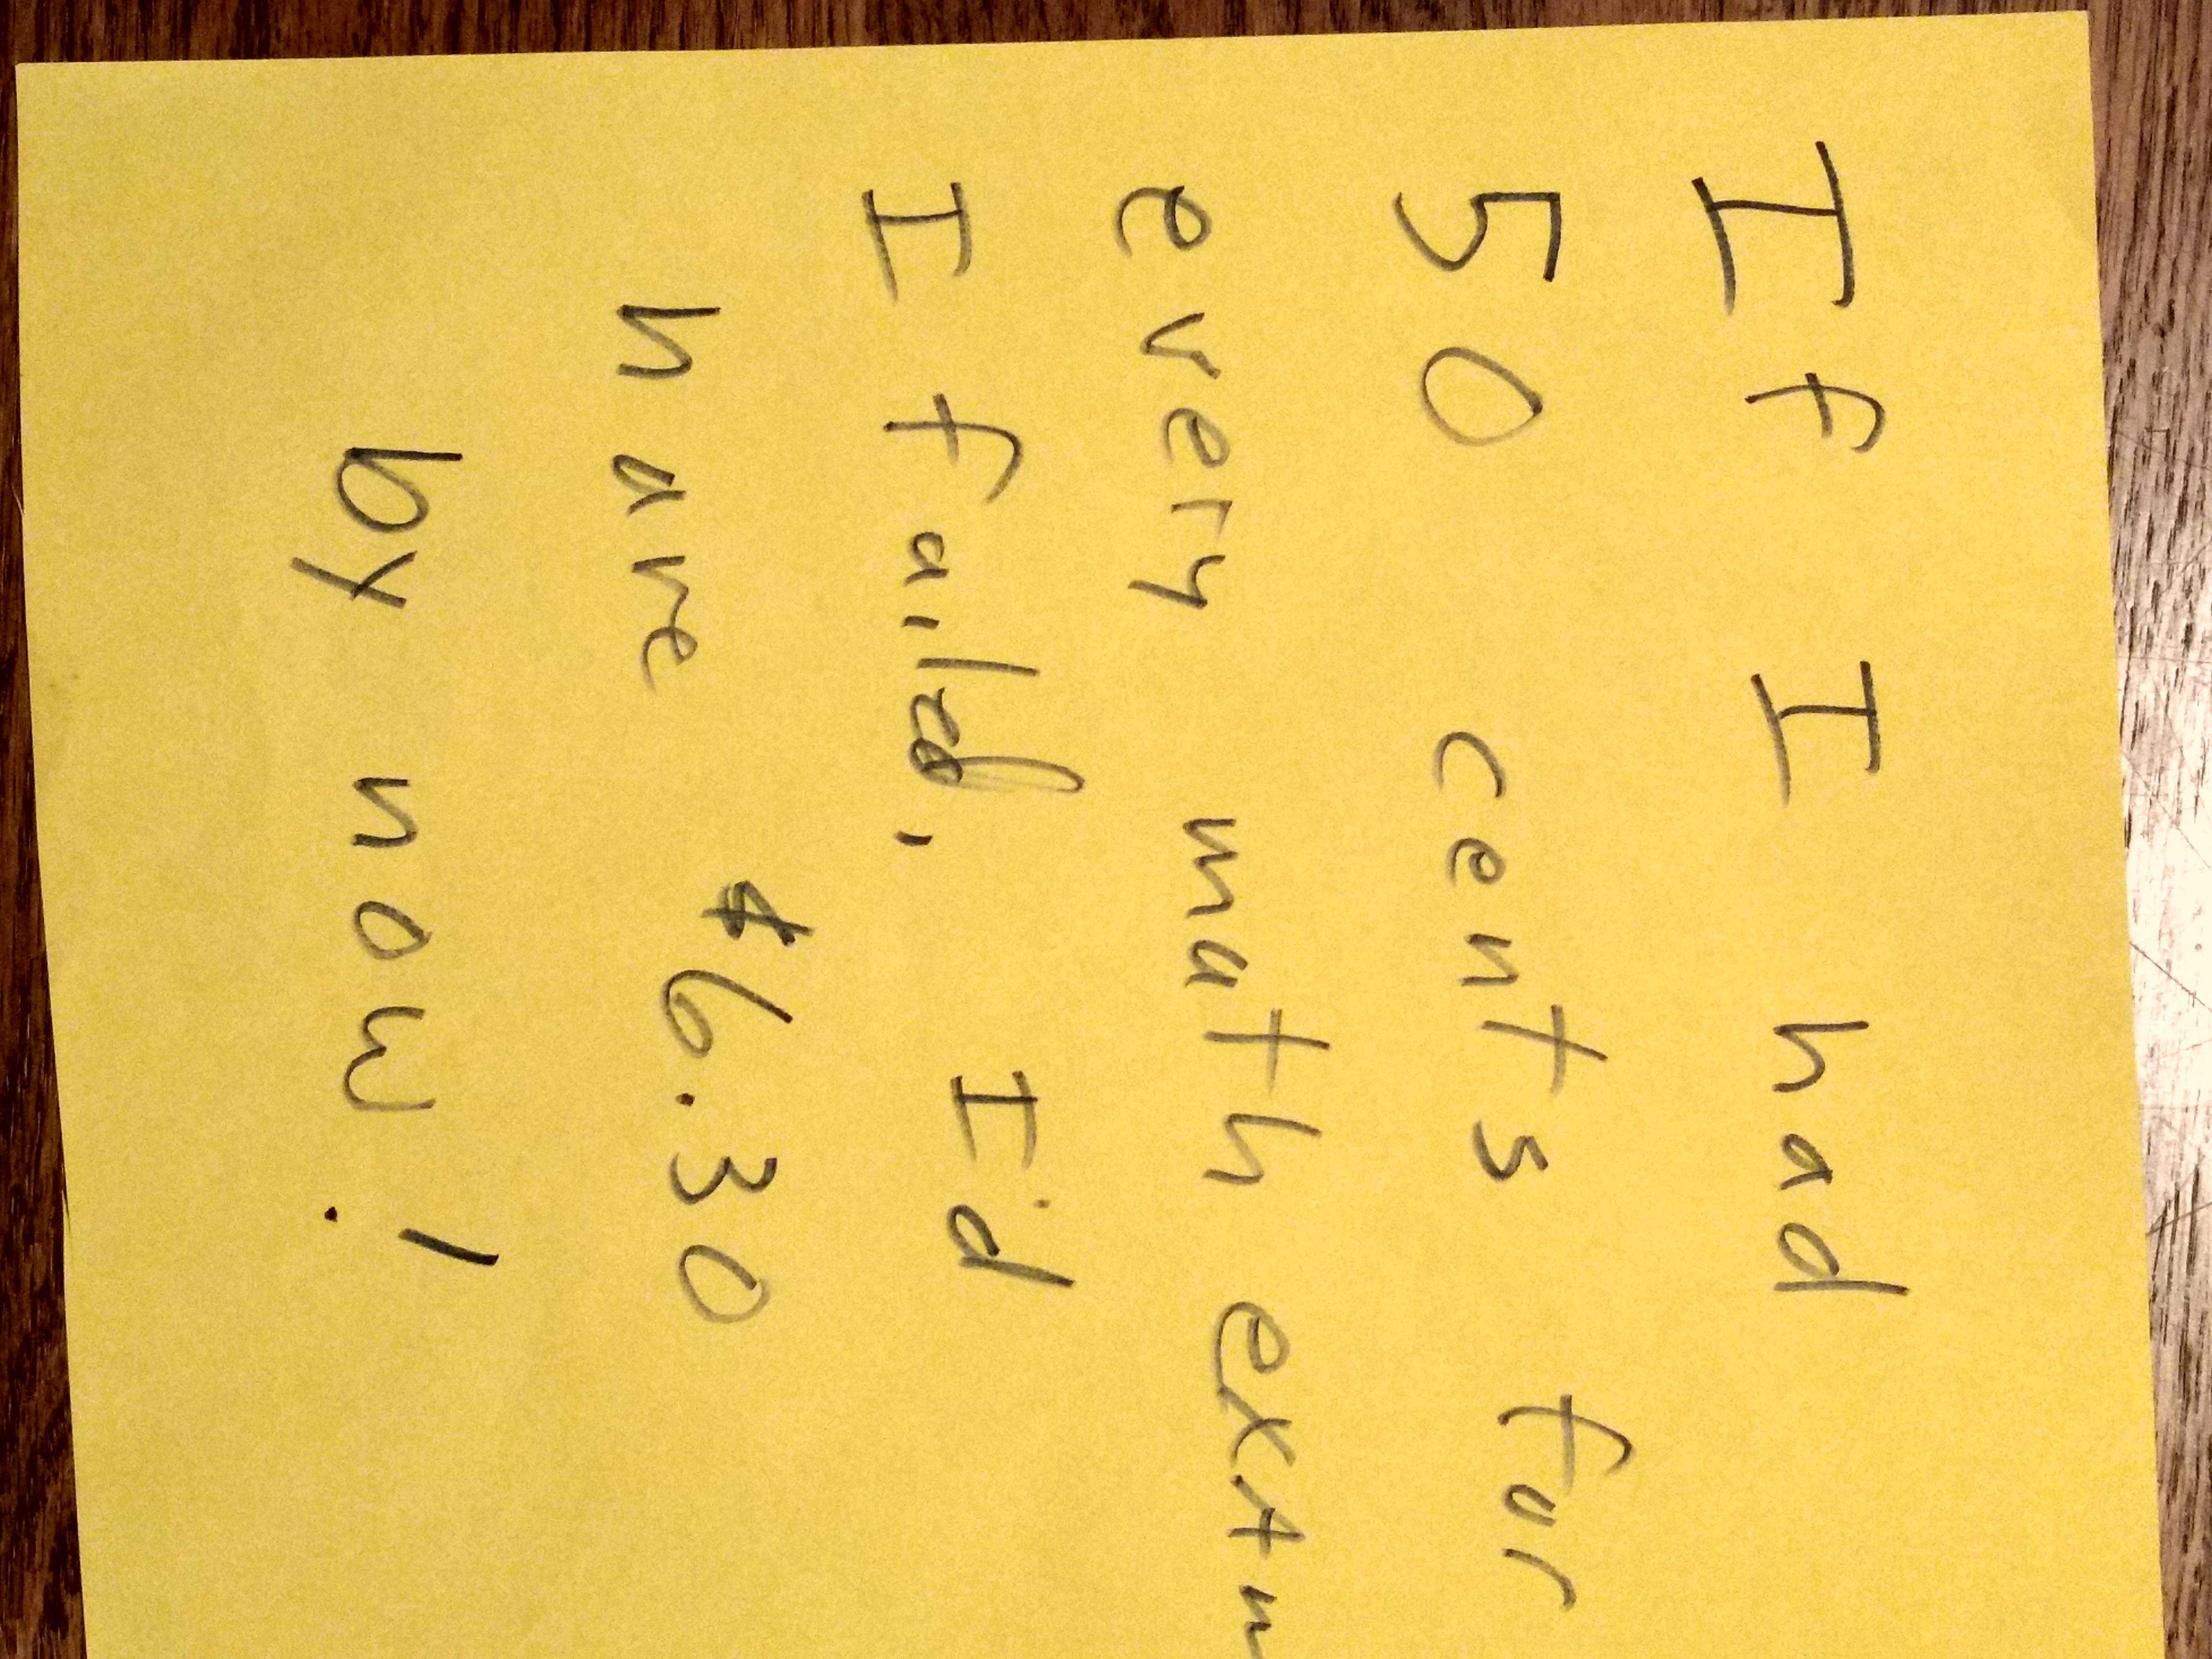 If I had
50 cents for
every math exam
I failed, I'd
have $6.30
by now!